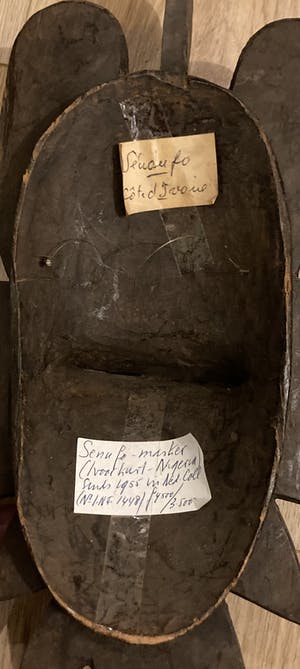 Sénoufo
Côte d'Ivoire
Senufo - masker
(Ivoorkust - Nigeria)
Sinds 1955 in Ned. Coll.
(№ INF. 1448) 4500/3500-